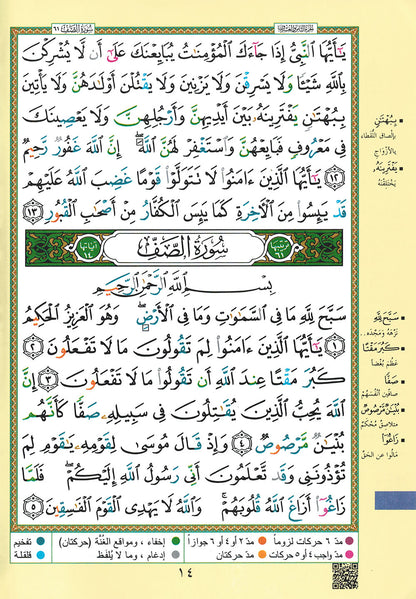 سُورَةُ الصَّفِّ ٦١
الجزء الثامن والعشرون
يَٰٓأَيُّهَا ٱلنَّبِىُّ إِذَا جَآءَكَ ٱلْمُؤْمِنَٰتُ يُبَايِعْنَكَ عَلَىٰٓ أَن لَّا يُشْرِكْنَ
بِٱللَّهِ شَيْـًٔا وَلَا يَسْرِقْنَ وَلَا يَزْنِينَ وَلَا يَقْتُلْنَ أَوْلَٰدَهُنَّ وَلَا يَأْتِينَ
بِبُهْتَٰنٍ يَفْتَرِينَهُۥ بَيْنَ أَيْدِيهِنَّ وَأَرْجُلِهِنَّ وَلَا يَعْصِينَكَ
فِى مَعْرُوفٍ فَبَايِعْهُنَّ وَٱسْتَغْفِرْ لَهُنَّ ٱللَّهَ ۖ إِنَّ ٱللَّهَ غَفُورٌ رَّحِيمٌ
١٢ يَٰٓأَيُّهَا ٱلَّذِينَ ءَامَنُوا۟ لَا تَتَوَلَّوْا۟ قَوْمًا غَضِبَ ٱللَّهُ عَلَيْهِمْ
قَدْ يَئِسُوا۟ مِنَ ٱلْءَاخِرَةِ كَمَا يَئِسَ ٱلْكُفَّارُ مِنْ أَصْحَٰبِ ٱلْقُبُورِ ١٣
ترتيبها ٦١ سُورَةُ الصَّفِّ آياتها ١٤
بِسْمِ ٱللَّهِ ٱلرَّحْمَٰنِ ٱلرَّحِيمِ
سَبَّحَ لِلَّهِ مَا فِى ٱلسَّمَٰوَٰتِ وَمَا فِى ٱلْأَرْضِ ۖ وَهُوَ ٱلْعَزِيزُ ٱلْحَكِيمُ
١ يَٰٓأَيُّهَا ٱلَّذِينَ ءَامَنُوا۟ لِمَ تَقُولُونَ مَا لَا تَفْعَلُونَ ٢
كَبُرَ مَقْتًا عِندَ ٱللَّهِ أَن تَقُولُوا۟ مَا لَا تَفْعَلُونَ ٣ إِنَّ
ٱللَّهَ يُحِبُّ ٱلَّذِينَ يُقَٰتِلُونَ فِى سَبِيلِهِۦ صَفًّا كَأَنَّهُم
بُنْيَٰنٌ مَّرْصُوصٌ ٤ وَإِذْ قَالَ مُوسَىٰ لِقَوْمِهِۦ يَٰقَوْمِ لِمَ
تُؤْذُونَنِى وَقَد تَّعْلَمُونَ أَنِّى رَسُولُ ٱللَّهِ إِلَيْكُمْ ۖ فَلَمَّا
زَاغُوٓا۟ أَزَاغَ ٱللَّهُ قُلُوبَهُمْ ۚ وَٱللَّهُ لَا يَهْدِى ٱلْقَوْمَ ٱلْفَٰسِقِينَ ٥
بِبُهْتَٰنٍ
بإلصاق اللُّقطاء
بالأزواج
يَفْتَرِينَهُۥ
يختلقنه
سَبَّحَ لِلَّهِ
نزّهه ومجّده..
كَبُرَ مَقْتًا
عظُم بُغضًا
صَفًّا
صافّين أنفسهم
بُنْيَٰنٌ مَّرْصُوصٌ
متلاصق مُحكَم
زَاغُوٓا۟
مالوا عن الحق
مدّ ٦ حركات لزوماً
مدّ ٢ أو ٤ أو ٦ جوازاً
إخفاء ، ومواقع الغُنَّة (حركتان)
تفخيم
مدّ واجب ٤ أو ٥ حركات
مدّ حركتان
إدغام ، وما لا يُلفَظ
قلقلة
١٤